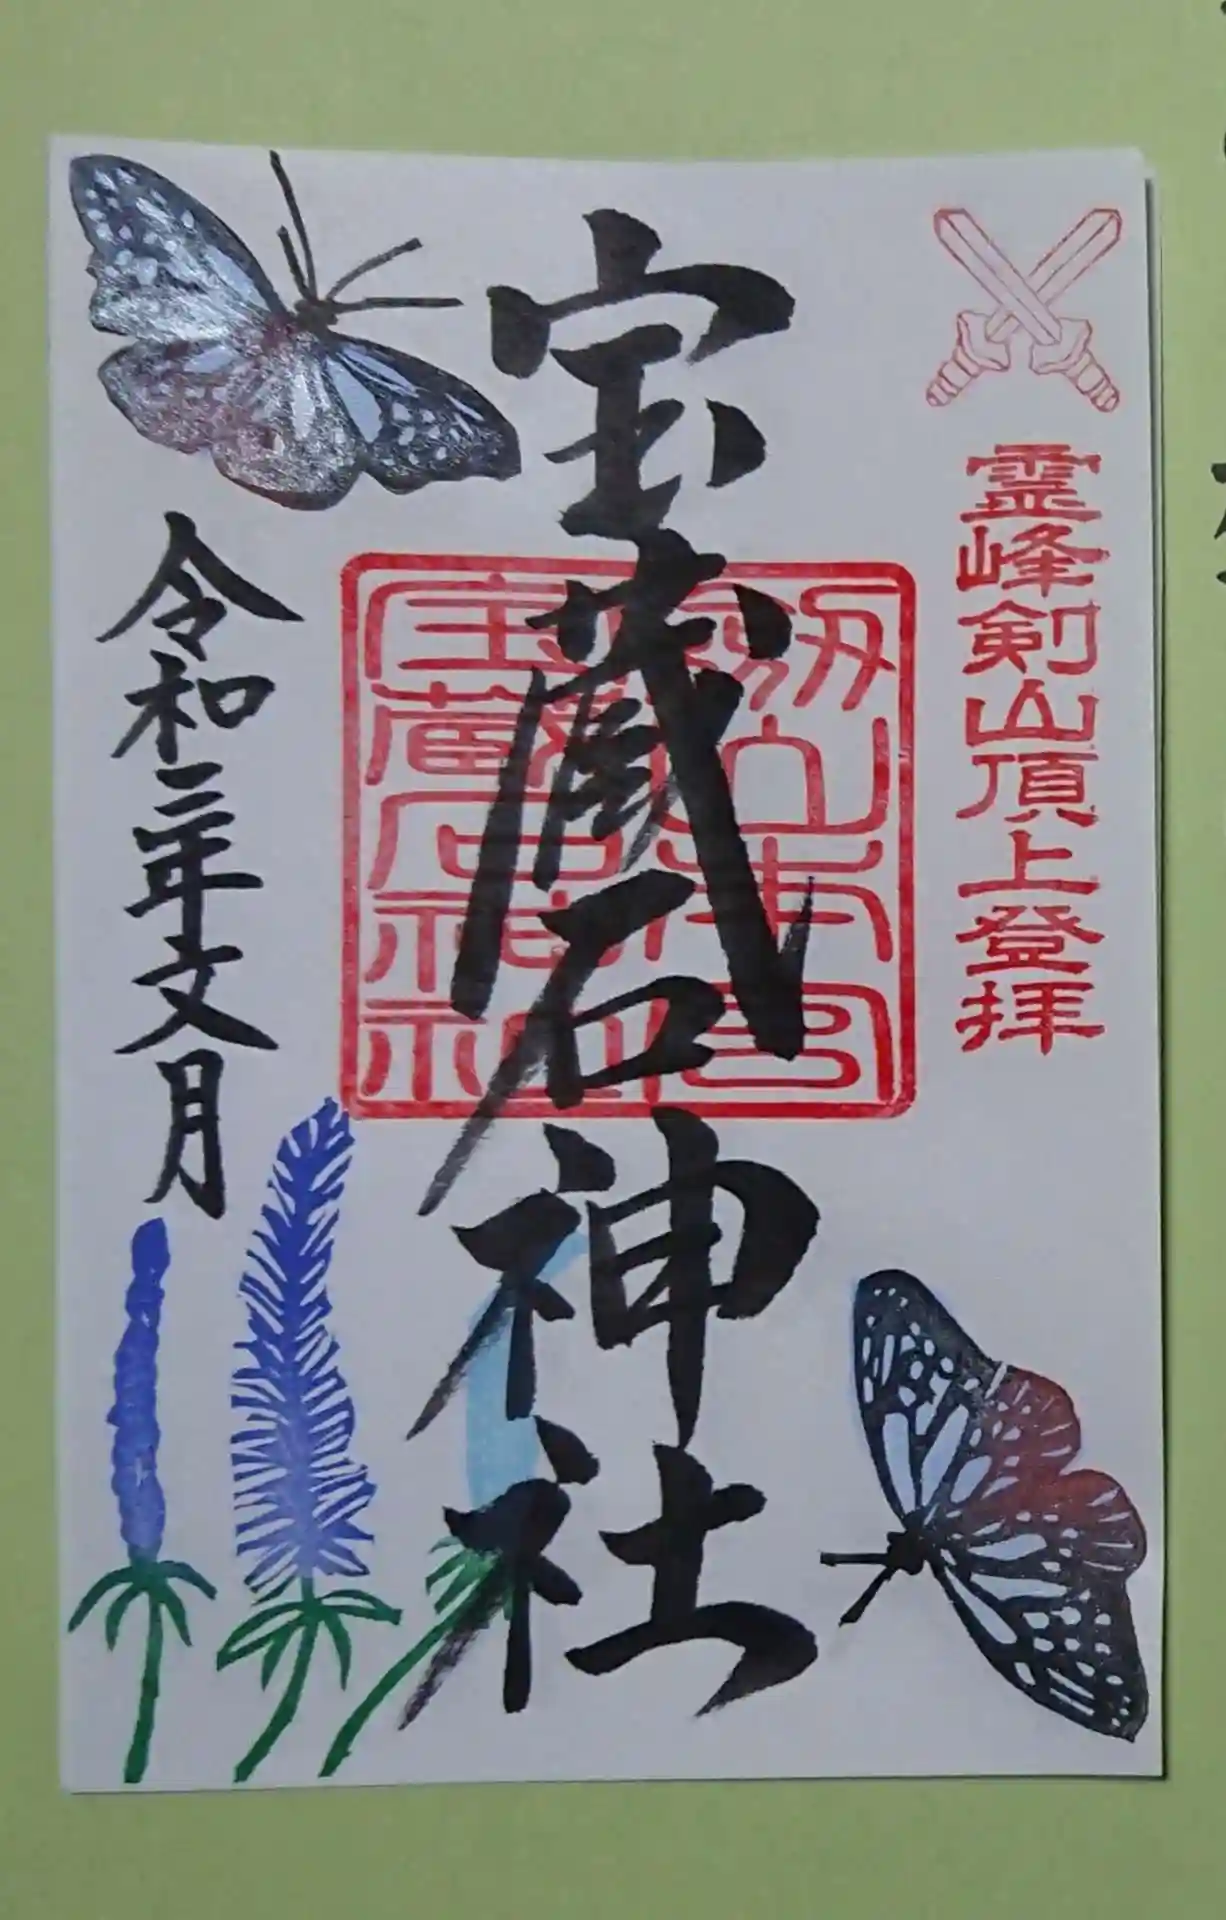 霊峰剣山頂上登拝
宝蔵石神社
劔山本宮
宝蔵石神社
令和二年文月